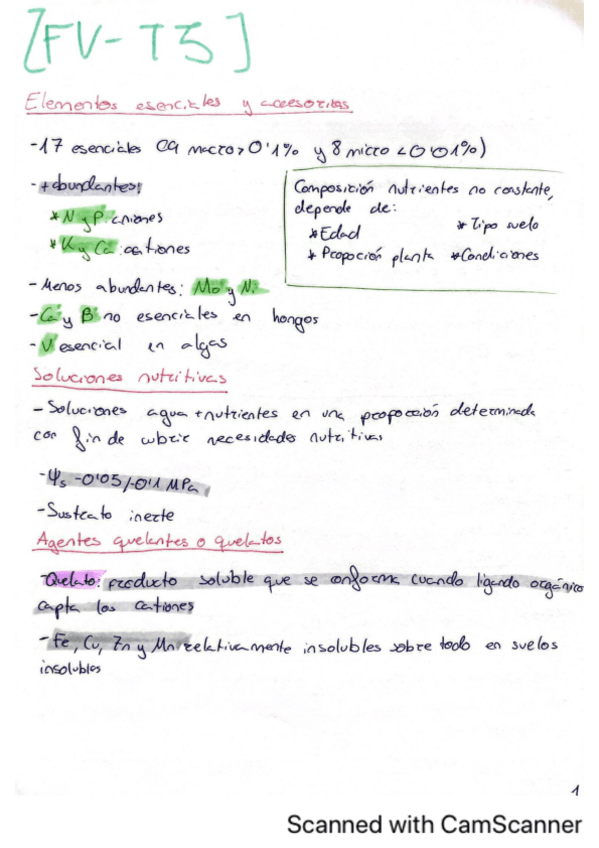 [FV-T3]
Elementos esenciales y accesorios
-17 esenciales (9 macro>0'1% y 8 micro <0'01%)
- + abundantes:
* N y P: aniones
* K y Ca: cationes
Composición nutrientes no constante,
depende de:
* Edad * Tipo suelo
* Propoción planta * Condiciones
- Menos abundantes: Mo y Ni
- Ca y B no esenciales en hongos
- V esencial en algas
Soluciones nutritivas
- Soluciones agua + nutrientes en una proporción determinada
con fin de cubrir necesidades nutritivas
- Ψs -0'05/-0'1 MPa
- Sustrato inerte
Agentes quelantes o quelatos
- Quelato: producto soluble que se conforma cuando ligando orgánico
capta los cationes
- Fe, Cu, Zn y Mn relativamente insolubles sobre todo en suelos
insolubles
1
Scanned with CamScanner